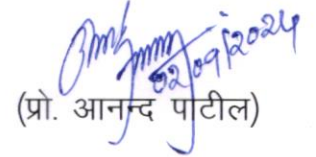 02/09/2024
(प्रो. आनन्द पाटील)